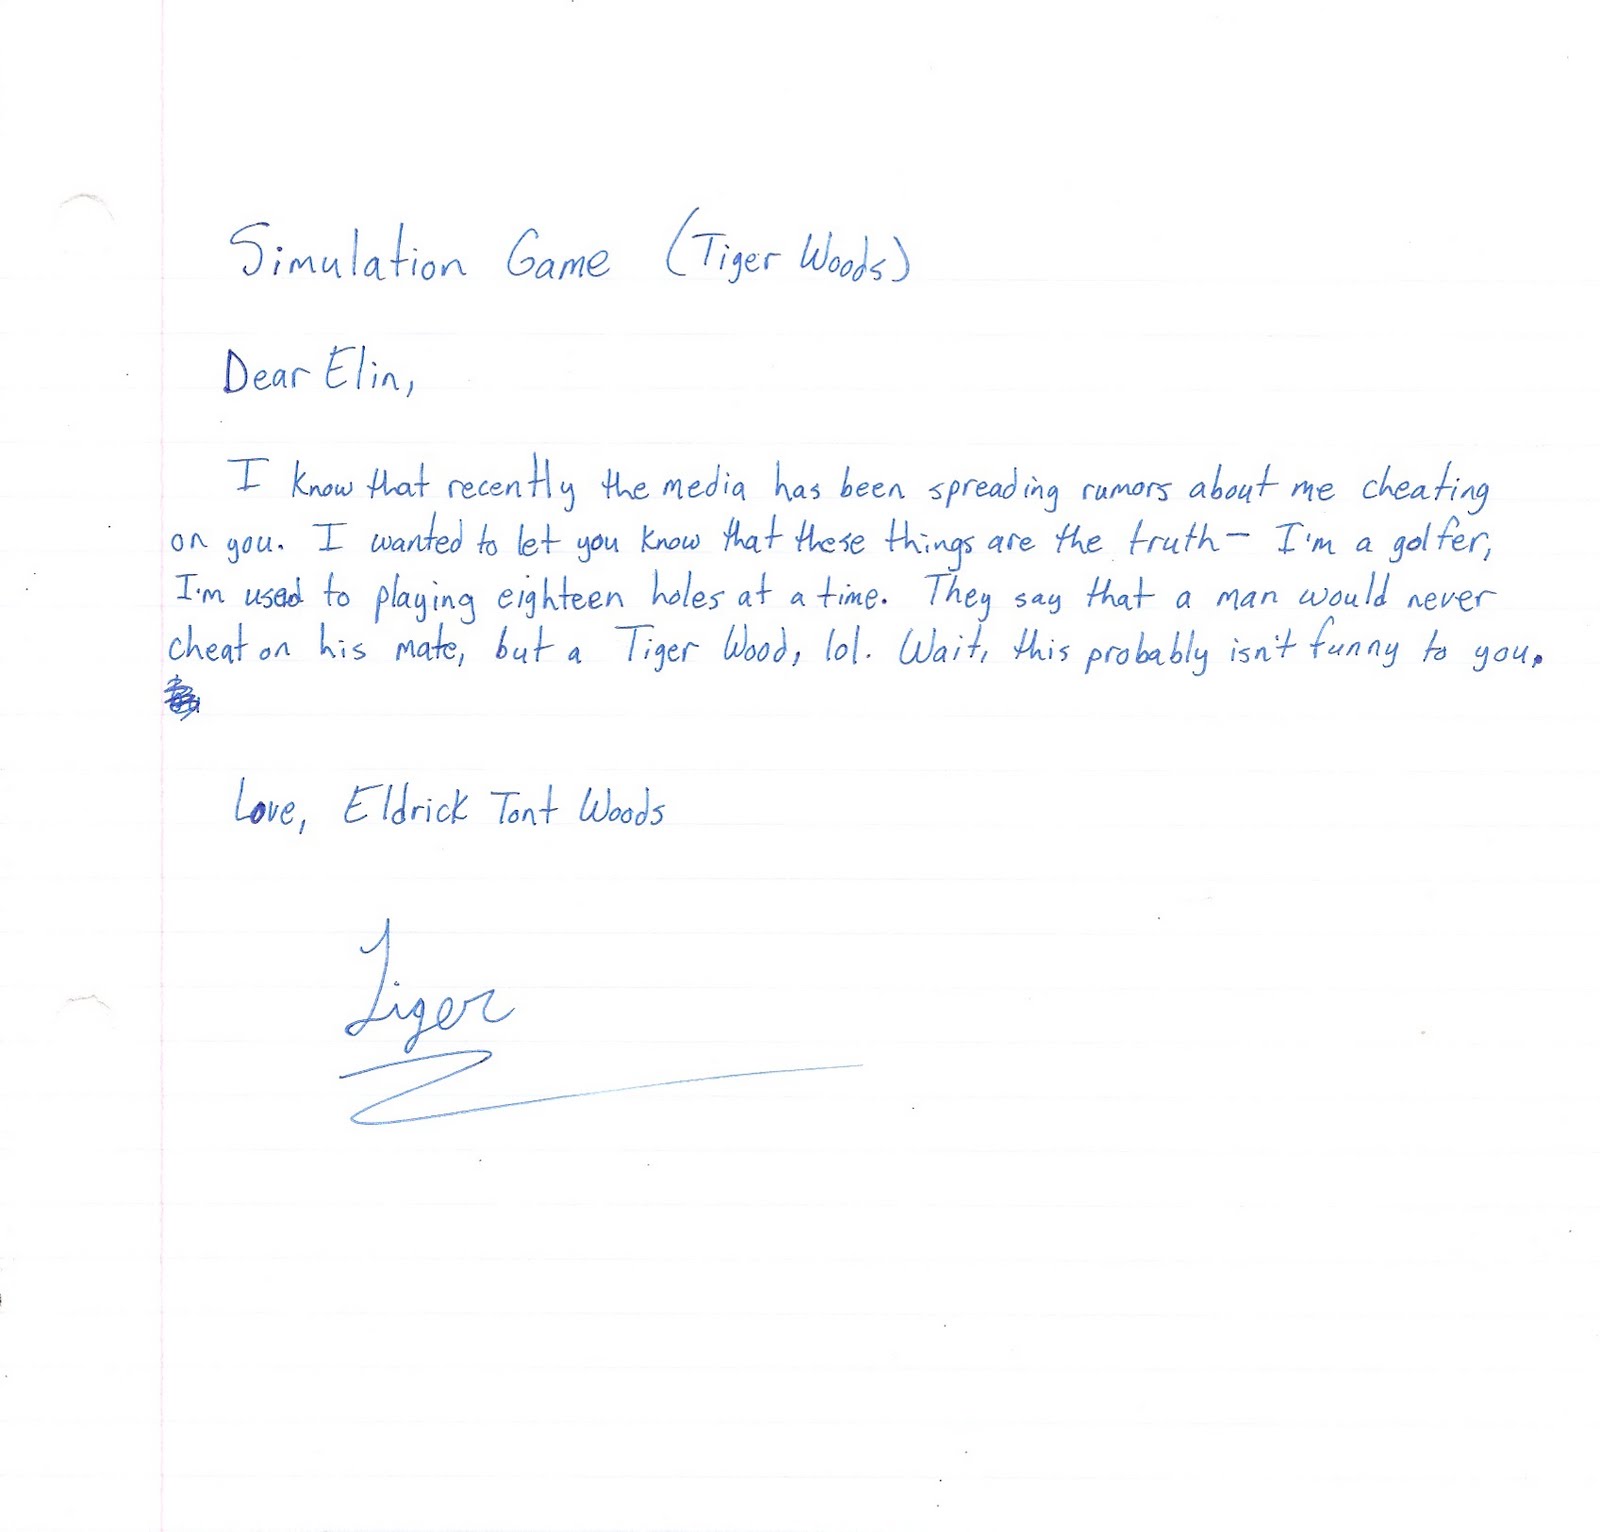 Simulation Game (Tiger Woods)
Dear Elin,
I know that recently the media has been spreading rumors about me cheating
on you. I wanted to let you know that these things are the truth- I'm a golfer,
I'm used to playing eighteen holes at a time. They say that a man would never
cheat on his mate, but a Tiger Wood, lol. Wait, this probably isn't funny to you.
Love, Eldrick Tont Woods
Tiger